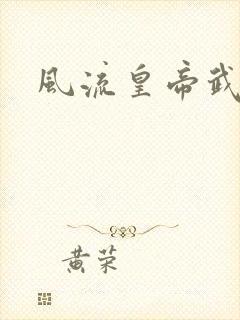 風流皇帝武
黄荣